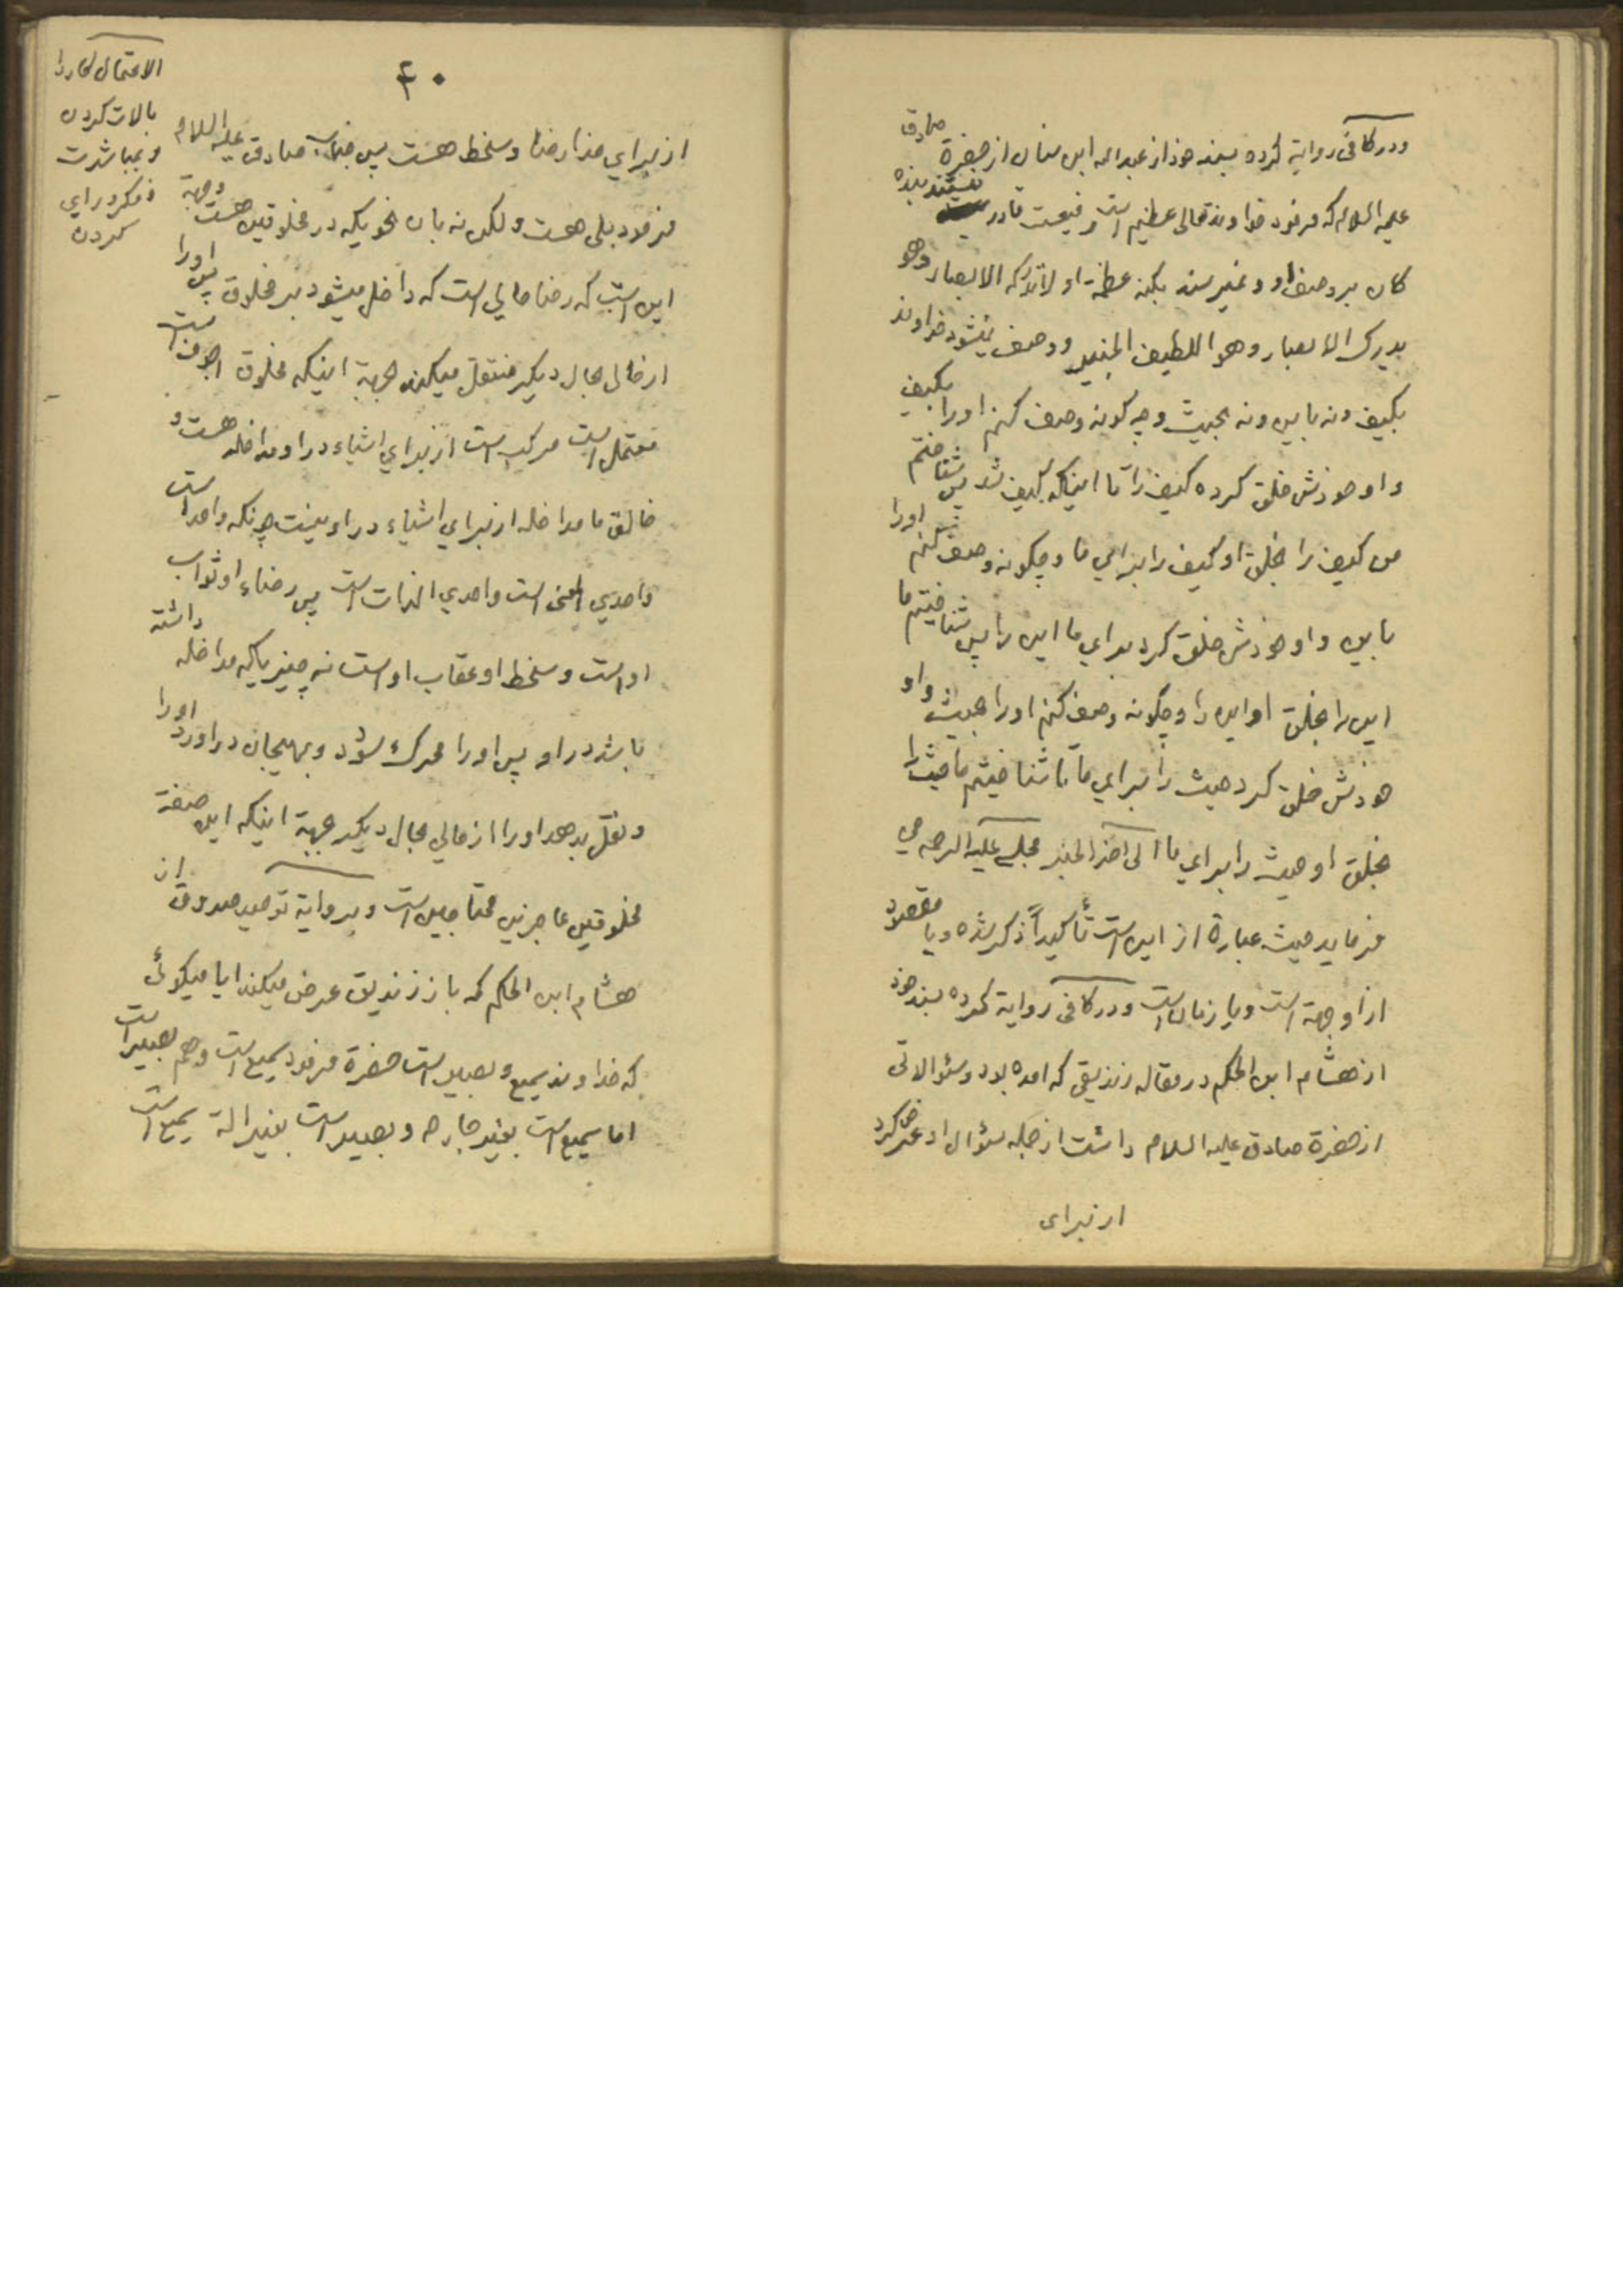 ودر کافی روایة کرده بسند خود از عبدالله ابن سنان از حضرة صادق
علیه السلام که فرمود خداوند تعالی عظیم است رفیعست قادر نیستند بنده
کان بر وصف او و نمیرسند بکنه عظمة او لاتدرکه الابصار وهو
یدرک الابصار وهو اللطیف الخبیر ووصف نمیشود خداوند
بکیف ونه باین ونه بحیث وچه کونه وصف کنم اورا بکیف
واو خودش خلق کرده کیف را تا اینکه کیف شد پس شناختم
من کیف را بخلق او کیف را برای ما وچکونه وصف کنم اورا
باین واو خودش خلق کرد برای ما این را پس شناختیم ما
این را بخلق او این را وچکونه وصف کنم اورا بحیث واو
خودش خلق کرد حیث را برای ما تا شناختیم ما حیث را
بخلق او حیث را برای ما الی اخر الخبر مجلسی علیه الرحمه می
فرماید حیث عبارة از این است تأکیداً ذکر شده ویا مقصود
از او جهة است ویا زمان است ودر کافی روایة کرده بسند خود
از هشام ابن الحکم در مقاله زندیقی که امده بود وسئوالاتی
از حضرة صادق علیه السلام داشت از جمله سئوال او عرض کرد
از برای
۴۰
از برای خدا رضا وسخط هست پس جناب صادق علیه السلام
فرمود بلی هست ولکن نه بان نحویکه در مخلوقین هست وجهة
این است که رضا حالی است که داخل میشود بر مخلوق پس اورا
از حالی بحال دیکر منتقل میکند بجهة اینکه مخلوق اجوف است
معتمل است مرکب است از برای اشیاء در او مداخله هست و
خالق ما مداخله از برای اشیاء در او نیست چونکه واحد است
واحدی المعنی است واحدی الذات است پس رضاء او ثواب
اوست وسخط او عقاب اوست نه چیزیکه مداخله داشته
باشد در او پس اورا محرک شود وبهیجان در اورد اورا
ونقل بدهد اورا از حالی بحال دیکر بجهة اینکه این صفة
مخلوقین عاجزین محتاجین است وبروایة توحید صدوق از
هشام ابن الحکم که باز زندیق عرض میکند ایا میکوئی
که خداوند سمیع و بصیر است حضرة فرمود سمیع است وهم بصیر است
اما سمیع است بغیر جارحه وبصیر است بغیر الة سمیع است
الاعتمال کار را
بالات کردن
وبمباشرت
فکر ورای
کردن